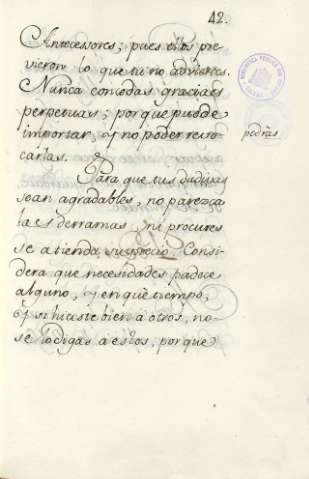 42.
Antecessores; pues ellos pre
vieron lo que tu no adviertes.
Nunca concedas gracias
perpetuas; porque puede
importar, q no poder revo
carlas.
Para que tus dadivas
sean agradables, no parezca
las derramas, ni procures
se atienda su precio. Consi
dera que necesidades padece
alguno, y en que tiempo,
y si hiciste bien a otros, no
se lo digas a estos, porque